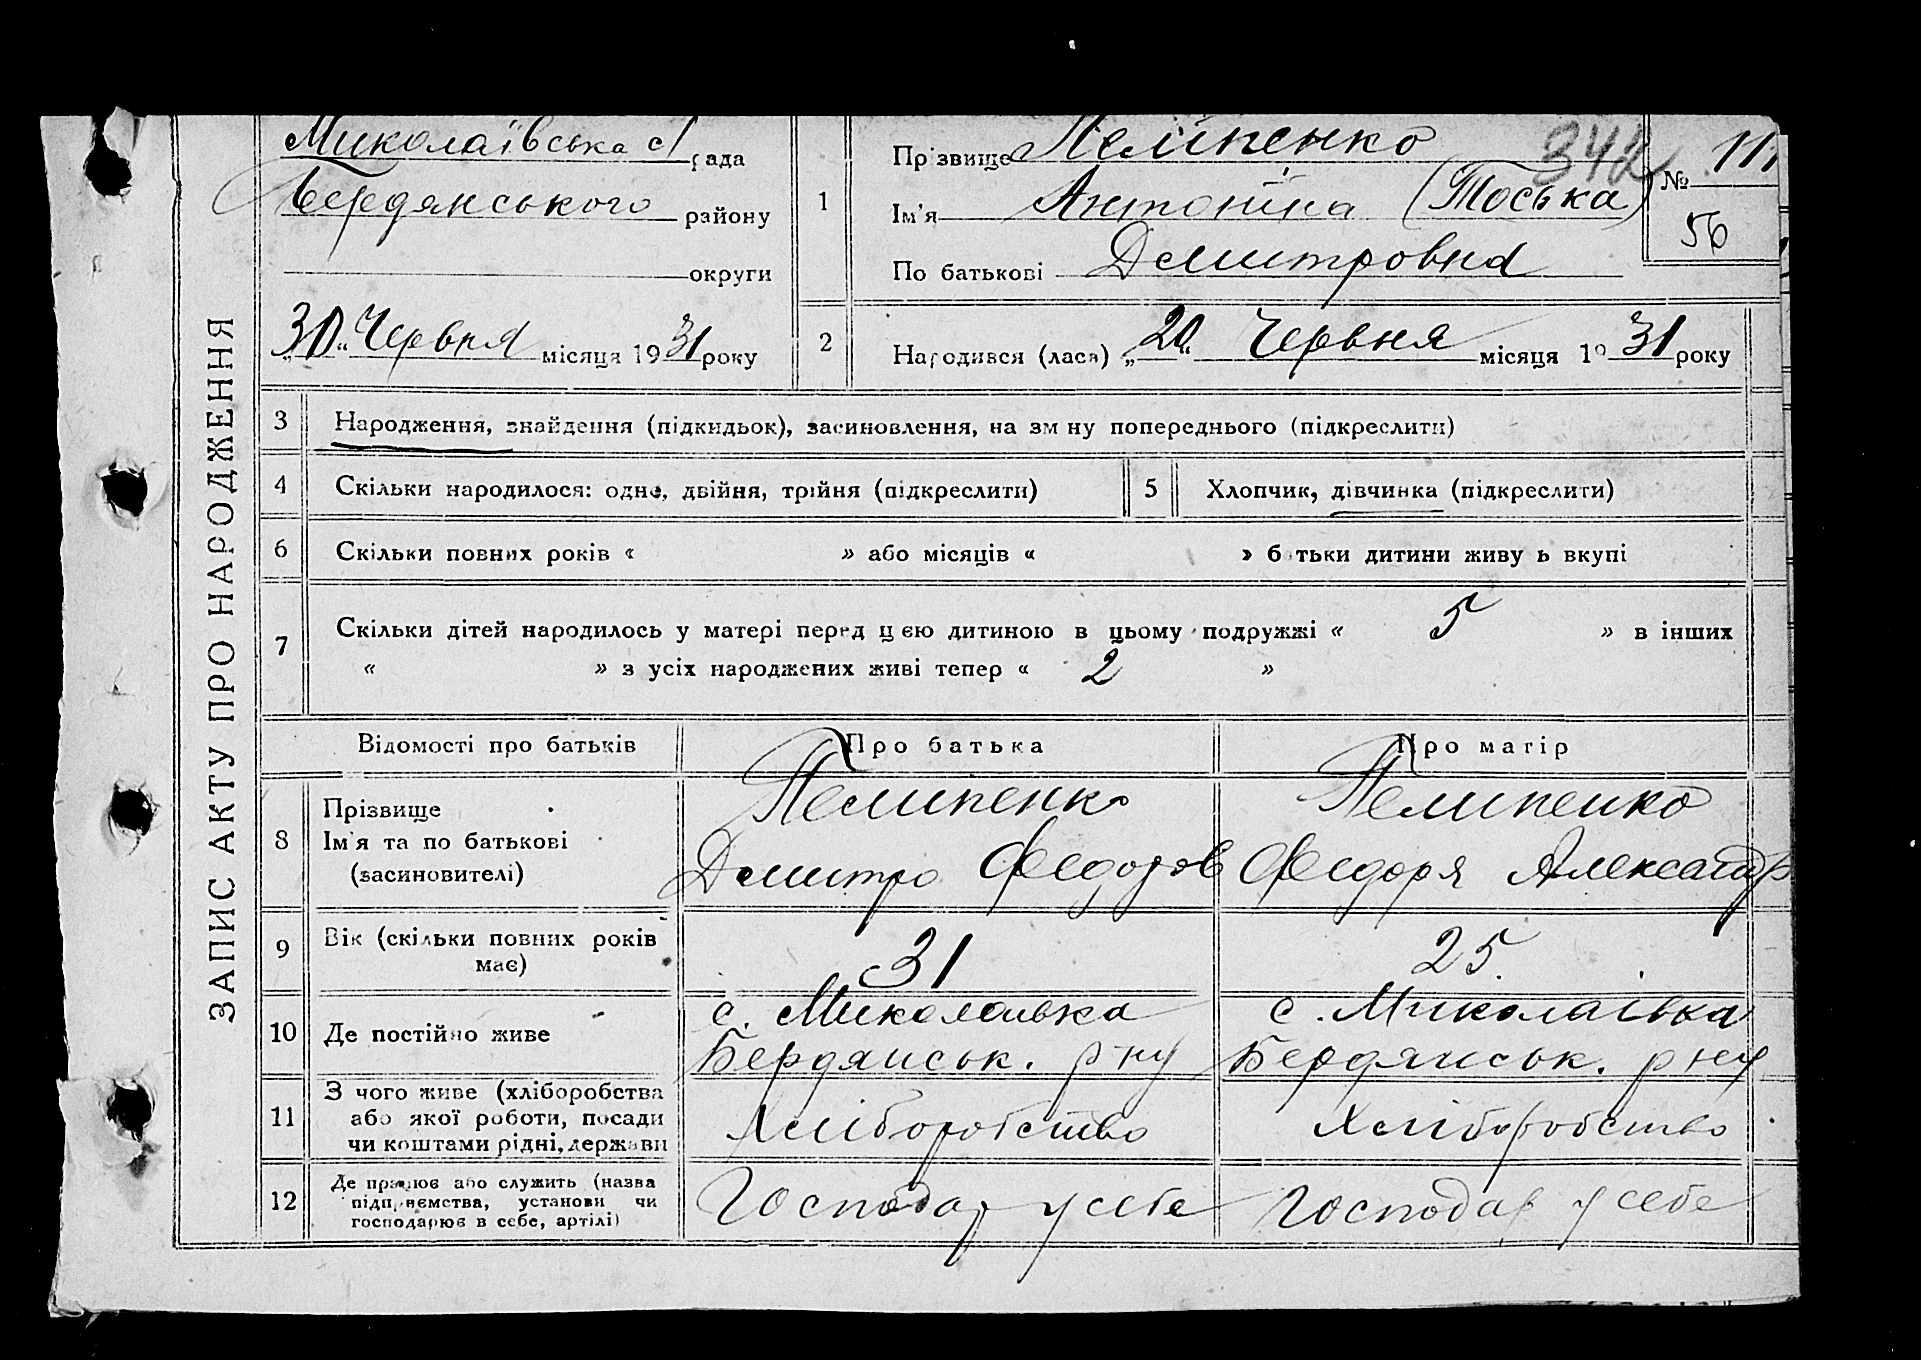 ЗАПИС АКТУ ПРО НАРОДЖЕННЯ
Миколаївська с/рада
Бердянського району
округи
„30“ Червня місяця 1931 року
1
Прізвище Пелипенко
342
Ім'я Антоніна (Тоська)
По батькові Дмитровна
№ 111
56
2 Народився (лася) „20“ Червня місяця 1931 року
3 Народження, знайдення (підкидьок), засиновлення, на зміну попереднього (підкреслити)
4 Скільки народилося: одне, двійня, трійня (підкреслити) 5 Хлопчик, дівчинка (підкреслити)
6 Скільки повних років « » або місяців « » батьки дитини живуть вкупі
7 Скільки дітей народилось у матері перед цією дитиною в цьому подружжі « 5 » в інших
« » з усіх народжених живі тепер « 2 »
Відомості про батьків Про батька Про матір
8 Прізвище Пелипенко Пелипенко
Ім'я та по батькові Дмитро Федоров Федоря Александр
(засиновителі)
9 Вік (скільки повних років має) 31 25.
10 Де постійно живе с. Миколаивка с. Миколаівка
Бердянськ. р-ну Бердянськ. р-ну
11 З чого живе (хліборобства
або якої роботи, посади Хліборобство Хліборобство
чи коштами рідні, держави
12 Де працює або служить (назва
підприємства, установи чи Господар у себе Господар у себе
господарює в себе, артілі)